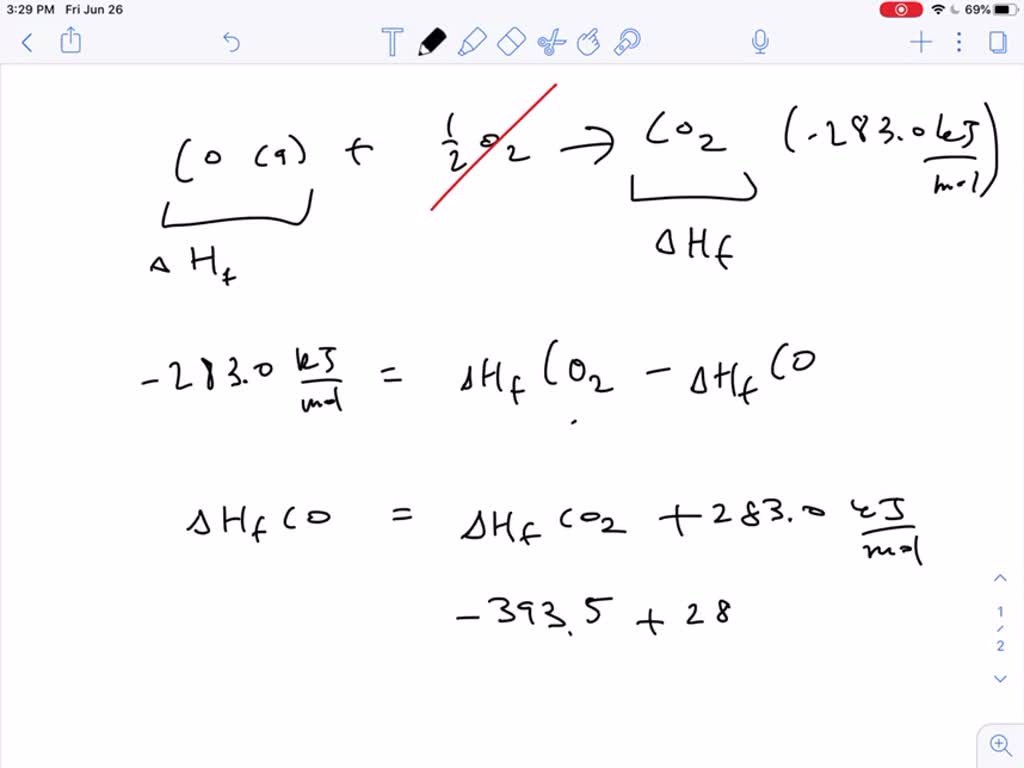 3:29 PM Fri Jun 26
69%
T
CO (g) + 1/2 O2 → CO2 (-283.0 kJ/mol)
ΔHf ΔHf
-283.0 kJ/mol = ΔHf CO2 - ΔHf CO
ΔHf CO = ΔHf CO2 + 283.0 kJ/mol
-393.5 + 28
1
/
2